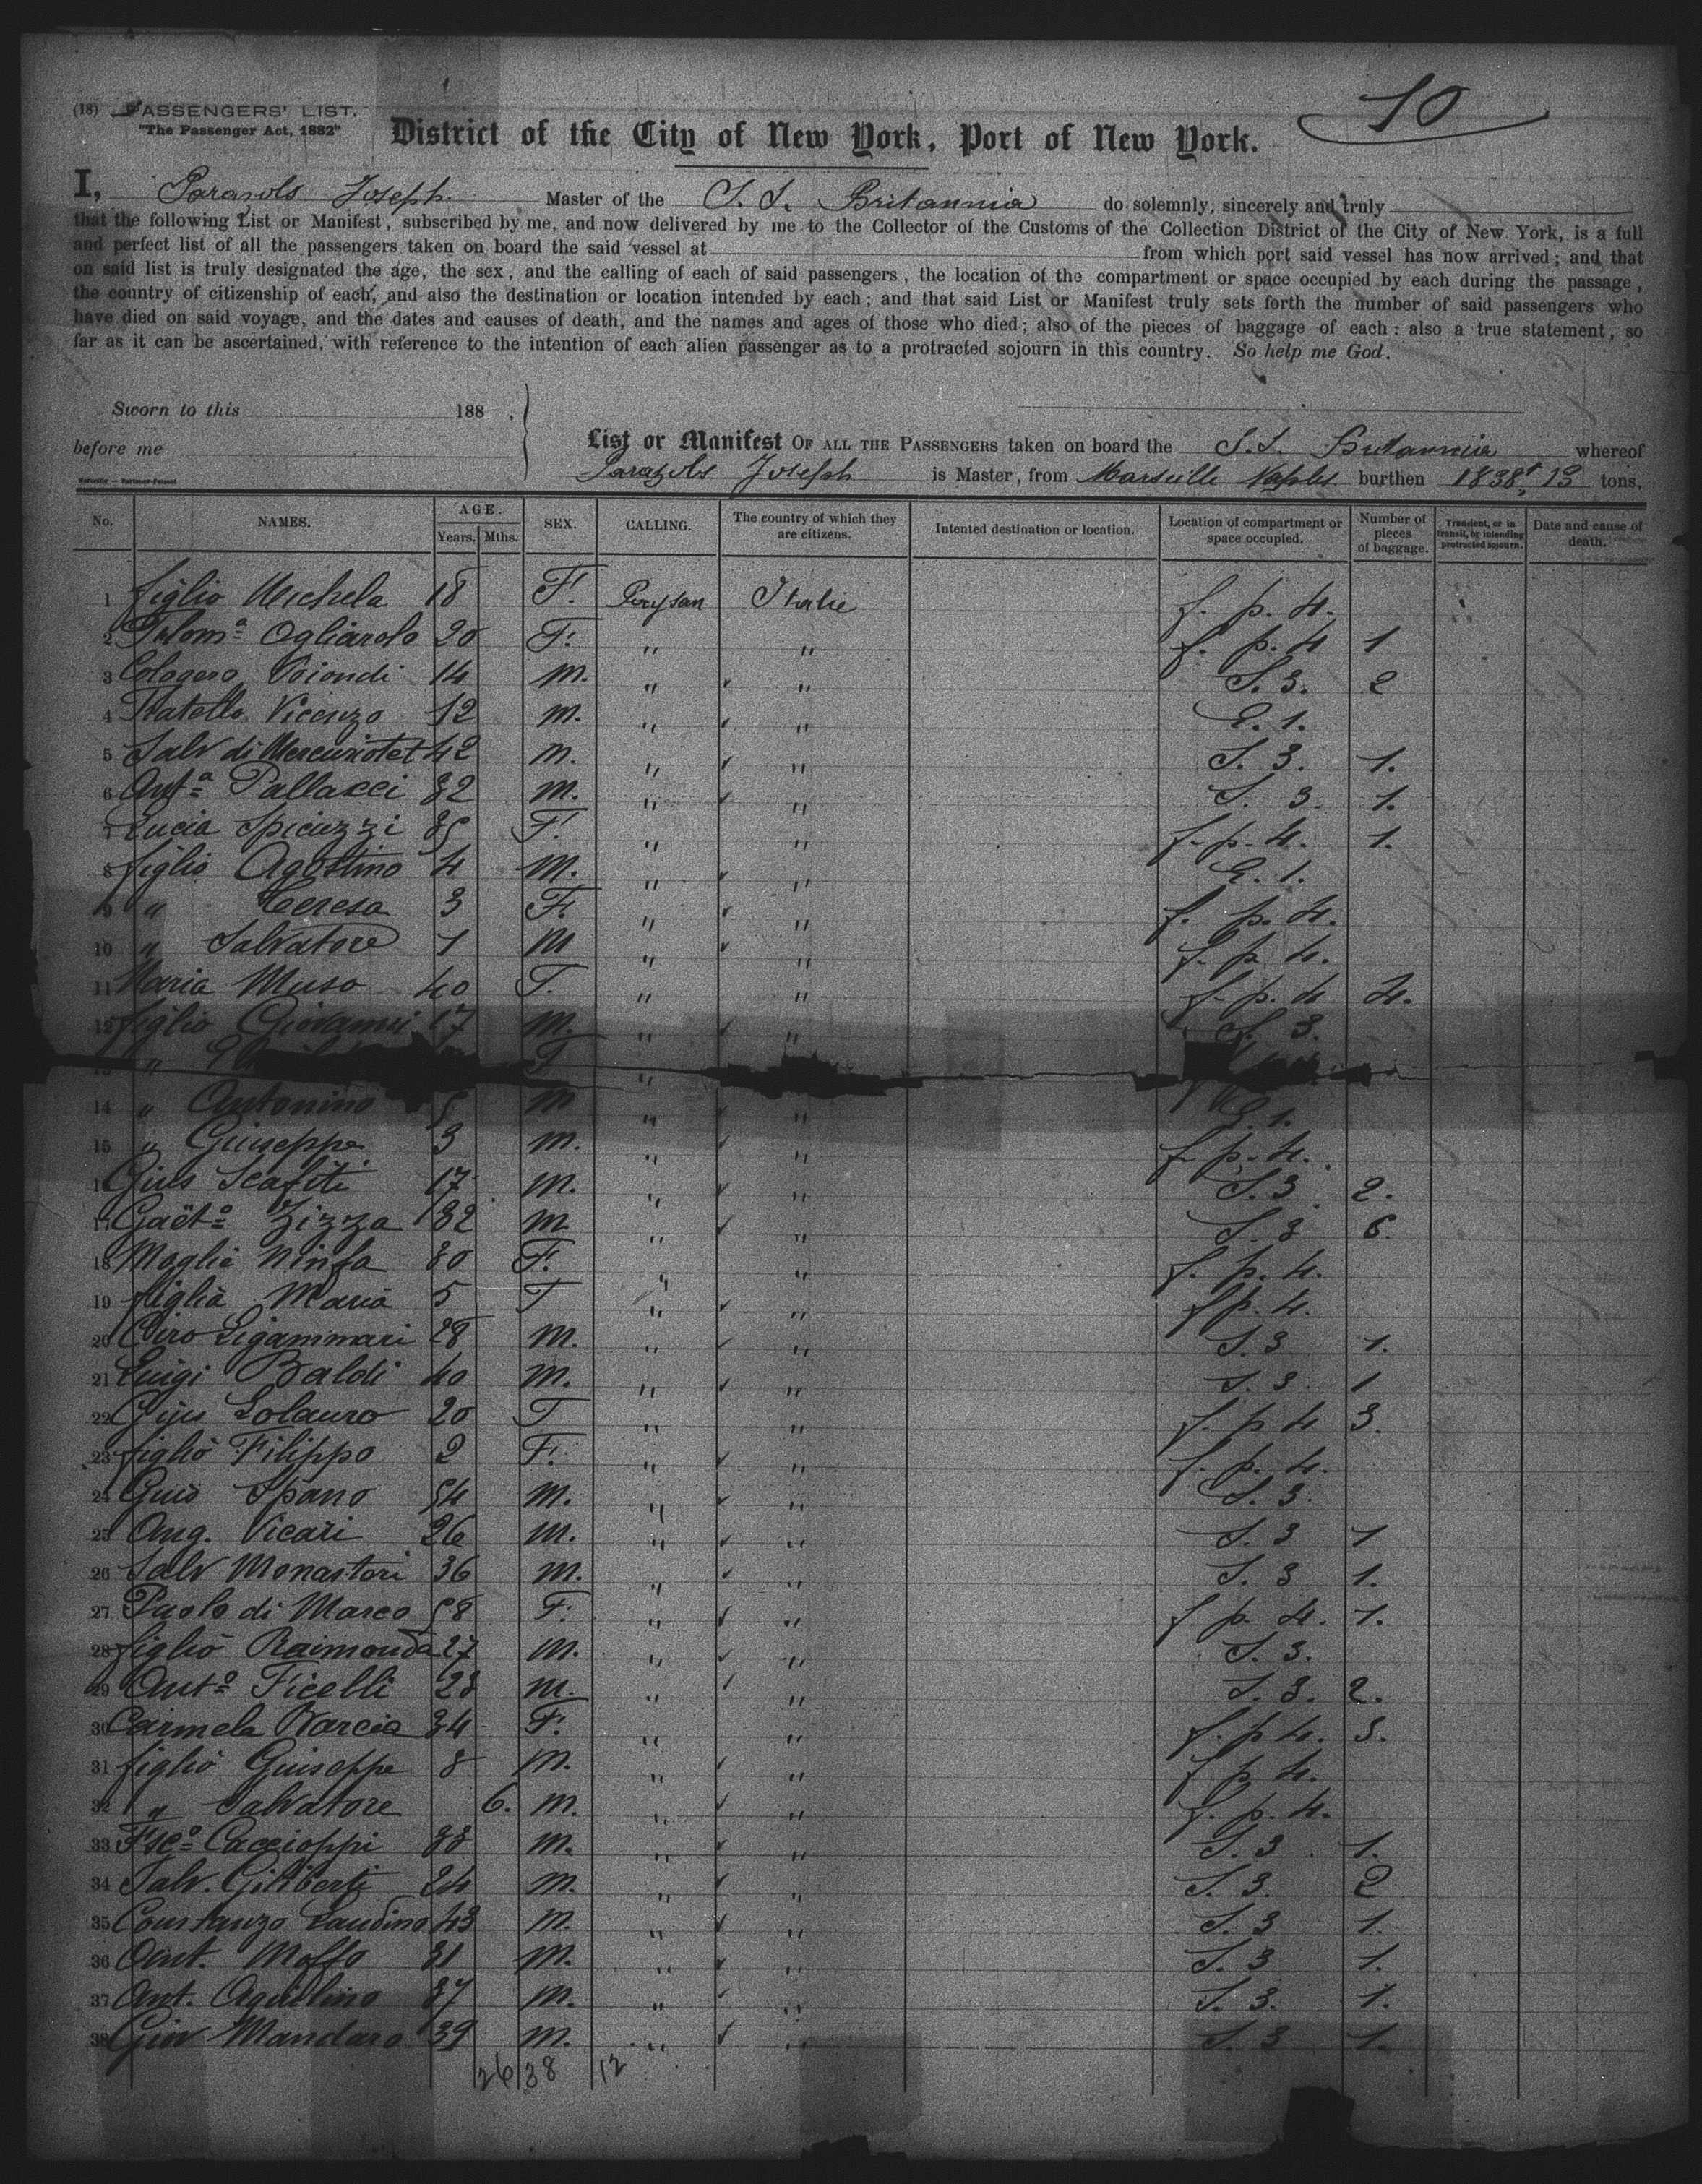 (18) PASSENGERS' LIST.
"The Passenger Act, 1882"
10
District of the City of New York, Port of New York.
I, Joseph Master of the S. S. Britannia do solemnly, sincerely and truly
that the following List or Manifest, subscribed by me, and now delivered by me to the Collector of the Customs of the Collection District of the City of New York, is a full
and perfect list of all the passengers taken on board the said vessel at from which port said vessel has now arrived; and that
on said list is truly designated the age, the sex, and the calling of each of said passengers, the location of the compartment or space occupied by each during the passage,
the country of citizenship of each, and also the destination or location intended by each; and that said List or Manifest truly sets forth the number of said passengers who
have died on said voyage, and the dates and causes of death, and the names and ages of those who died; also of the pieces of baggage of each: also a true statement, so
far as it can be ascertained, with reference to the intention of each alien passenger as to a protracted sojourn in this country. So help me God.
Sworn to this 188 ,
before me
List or Manifest OF ALL THE PASSENGERS taken on board the S.S. Britannia whereof
Joseph is Master, from Marseille Naples burthen 1838t, 13 tons,
No. NAMES. AGE. Years. Mths. SEX. CALLING. The country of which they are citizens. Intented destination or location. Location of compartment or space occupied. Number of pieces of baggage. Transient, or in transit, or intending protracted sojourn. Date and cause of death.
1 figlio Michela 18 F. Paysan Italie f. p. 4.
2 Ogliarolo 20 F. " " f. p. 4 1
3 Cologero Biondi 14 m. " " S. 3. 2
4 Fratello Vicenzo 12 m. " " E. 1.
5 Salv di 42 m. " " S. 3. 1.
6 Anta Pallacci 32 m. " " S. 3. 1.
7 Lucia Spicuzzi 35 F. " " f. p. 4. 1.
8 figlio Agostino 4 M. " " E. 1.
9 " Teresa 3 F. " " f. p. 4.
10 " Salvatore 1 M " " f. p. 4.
11 Maria Muso 40 F. " " f. p. 4 4.
12 figlio Giovanni 17 m. " " S. 3.
13 " F "
14 " Antonino 5 m " " E. 1.
15 " Giuseppe 3 m. " " f. p. 4.
16 Gius Scafiti 17 m. " " S. 3 2.
17 Gaëto Zizza 32 m. " " S. 3 6.
18 Moglie Ninfa 30 F. " " f. p. 4.
19 figlia Maria 5 F " " f p. 4.
20 Ciro Ligammari 28 m. " " S. 3 1.
21 Luigi Baldi 40 m. " " S. 3 1
22 Gius Lolauro 20 F " " f. p 4 3.
23 figlio Filippo 2 F. " " f. p. 4.
24 Gius Spano 54 m. " " S. 3.
25 Ang. Vicari 26 m. " " S. 3 1
26 Salv Monastori 36 m. " " S. 3 1.
27 Paolo di Marco 58 F. " " f p. 4. 1.
28 figlio Raimonda 27 m. " " S. 3.
29 Anto Ficelli 23 m. " " S. 3. 2.
30 Carmela Narcia 34 F. " " f. p 4. 3.
31 figlio Giuseppe 8 m. " " f p 4.
32 " Salvatore 6. m. " " f. p. 4.
33 Fsco Caccioppi 33 m. " " S. 3. 1.
34 Salv. Giliberti 24 m. " " S. 3. 2
35 Constanzo Landino 43 m. " " S. 3 1.
36 Ant. Moffo 31 m. " " S. 3 1.
37 Ant. Aquilino 37 m. " " S. 3. 1.
38 Giov Mandaro 39 m. " " S. 3 1.
26 38 12